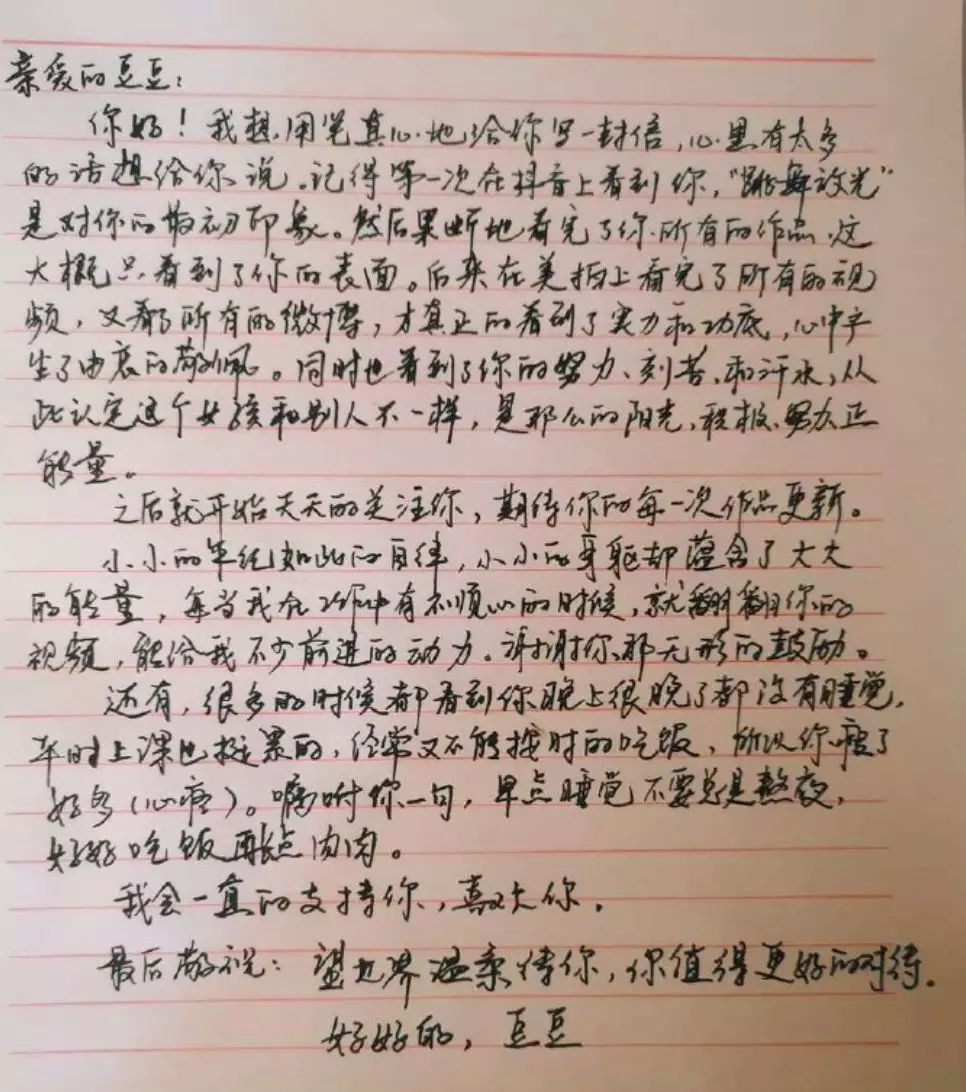 亲爱的豆豆：
你好！我想用笔真心地给你写一封信，心里有太多
的话想给你说。记得第一次在抖音上看到你，“跳舞放光”
是对你的最初印象。然后果断地看完了你所有的作品，这
大概只看到了你的表面。后来在美拍上看完了所有的视
频，又看了所有的微博，才真正的看到了实力和功底，心中产
生了由衷的敬佩。同时也看到了你的努力、刻苦、和汗水，从
此认定这个女孩和别人不一样，是那么的阳光，积极、努力正
能量。
之后就开始天天的关注你，期待你的每一次作品更新。
小小的年纪如此的自律，小小的身躯却蕴含了大大
的能量，每当我在工作中有不顺心的时候，就翻翻你的
视频，能给我不少前进的动力。谢谢你那无形的鼓励。
还有，很多的时候都看到你晚上很晚了都没有睡觉，
平时上课也挺累的，经常又不能按时的吃饭，所以你瘦了
好多（心疼）。嘱咐你一句，早点睡觉不要总是熬夜，
好好吃饭再长点肉肉。
我会一直的支持你，喜欢你。
最后敬祝：望世界温柔待你，你值得更好的对待。
好好的，豆豆